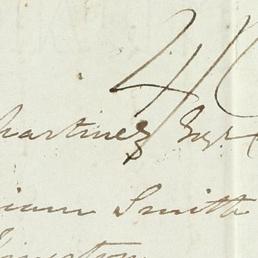 4/
hartinez Esqr
iam Smith
ingston